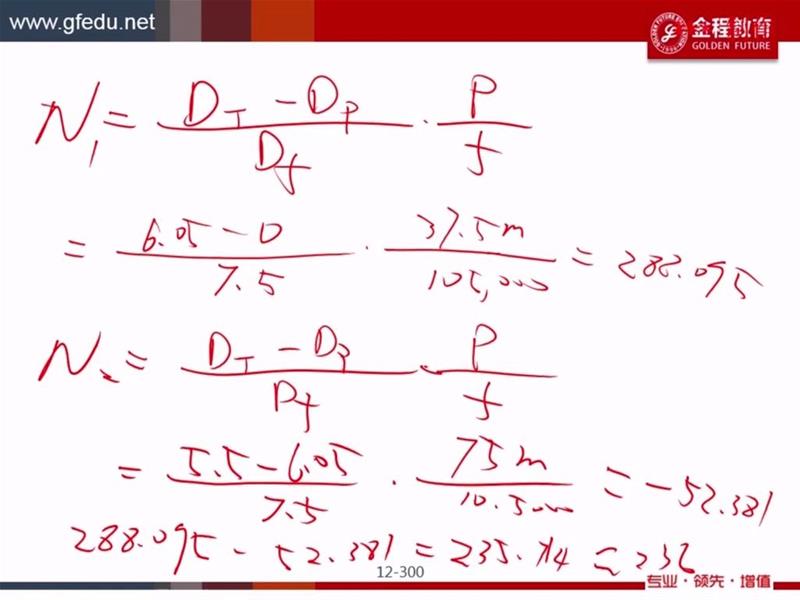 www.gfedu.net
金程教育
GOLDEN FUTURE
N₁ = (D_T - D_P)/D_f · P/f
= (6.05 - 0)/7.5 · 37.5m/105,000 = 288.095
N₂ = (D_T - D_P)/D_f · P/f
= (5.5 - 6.05)/7.5 · 75m/10.5000 = -52.381
288.095 - 52.381 = 235.714 ≈ 236
12-300
专业·领先·增值